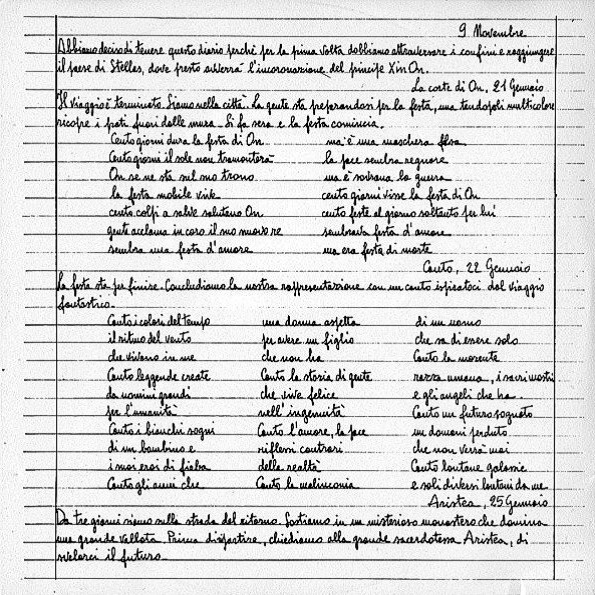 9 Novembre
Abbiamo deciso di tenere questo diario perchè per la prima volta dobbiamo attraversare i confini e raggiungere
il paese di Stellas, dove presto avverrà l'incoronazione del principe Xin On.
La corte di On, 21 Gennaio
Il viaggio è terminato. Siamo nella città. La gente sta preparandosi per la festa, una tendopoli multicolore
ricopre i prati fuori dalle mura. Si fa sera e la festa comincia.
Cento giorni dura la festa di On
Cento giorni il sole non tramonterà
On se ne sta sul suo trono
la festa mobile vive
cento colpi a salve salutano On
gente acclama in coro il suo nuovo re
sembra una festa d'amore
ma è una maschera falsa
la pace sembra regnare
ma è sovrana la guerra
cento giorni visse la festa di On
cento feste al giorno soltanto per lui
sembrava festa d'amore
ma era festa di morte
Canto, 22 Gennaio
La festa sta per finire. Concludiamo la nostra rappresentazione con un canto ispiratoci dal viaggio
fantastico.
Canto i colori del tempo
il ritmo del vento
che vivono in me
Canto leggende create
da uomini grandi
per l'umanità
Canto i bianchi sogni
di un bambino e
i suoi eroi di fiaba
Canto gli anni che
una donna aspetta
per avere un figlio
che non ha
Canto la storia di gente
che vive felice
nell'ingenuità
Canto l'amore, la pace
riflessi contrari
della realtà
Canto la malinconia
di un uomo
che sa di essere solo
Canto la morente
razza umana, i sacri mostri
e gli angeli che ha
Canto un futuro sognato
un domani perduto
che non verrà mai
Canto lontane galassie
e soli diversi lontani da me
Aristea, 25 Gennaio
Da tre giorni siamo sulla strada del ritorno. Sostiamo in un misterioso monastero che domina
una grande vallata. Prima di ripartire, chiediamo alla grande sacerdotessa Aristea, di
svelarci il futuro.